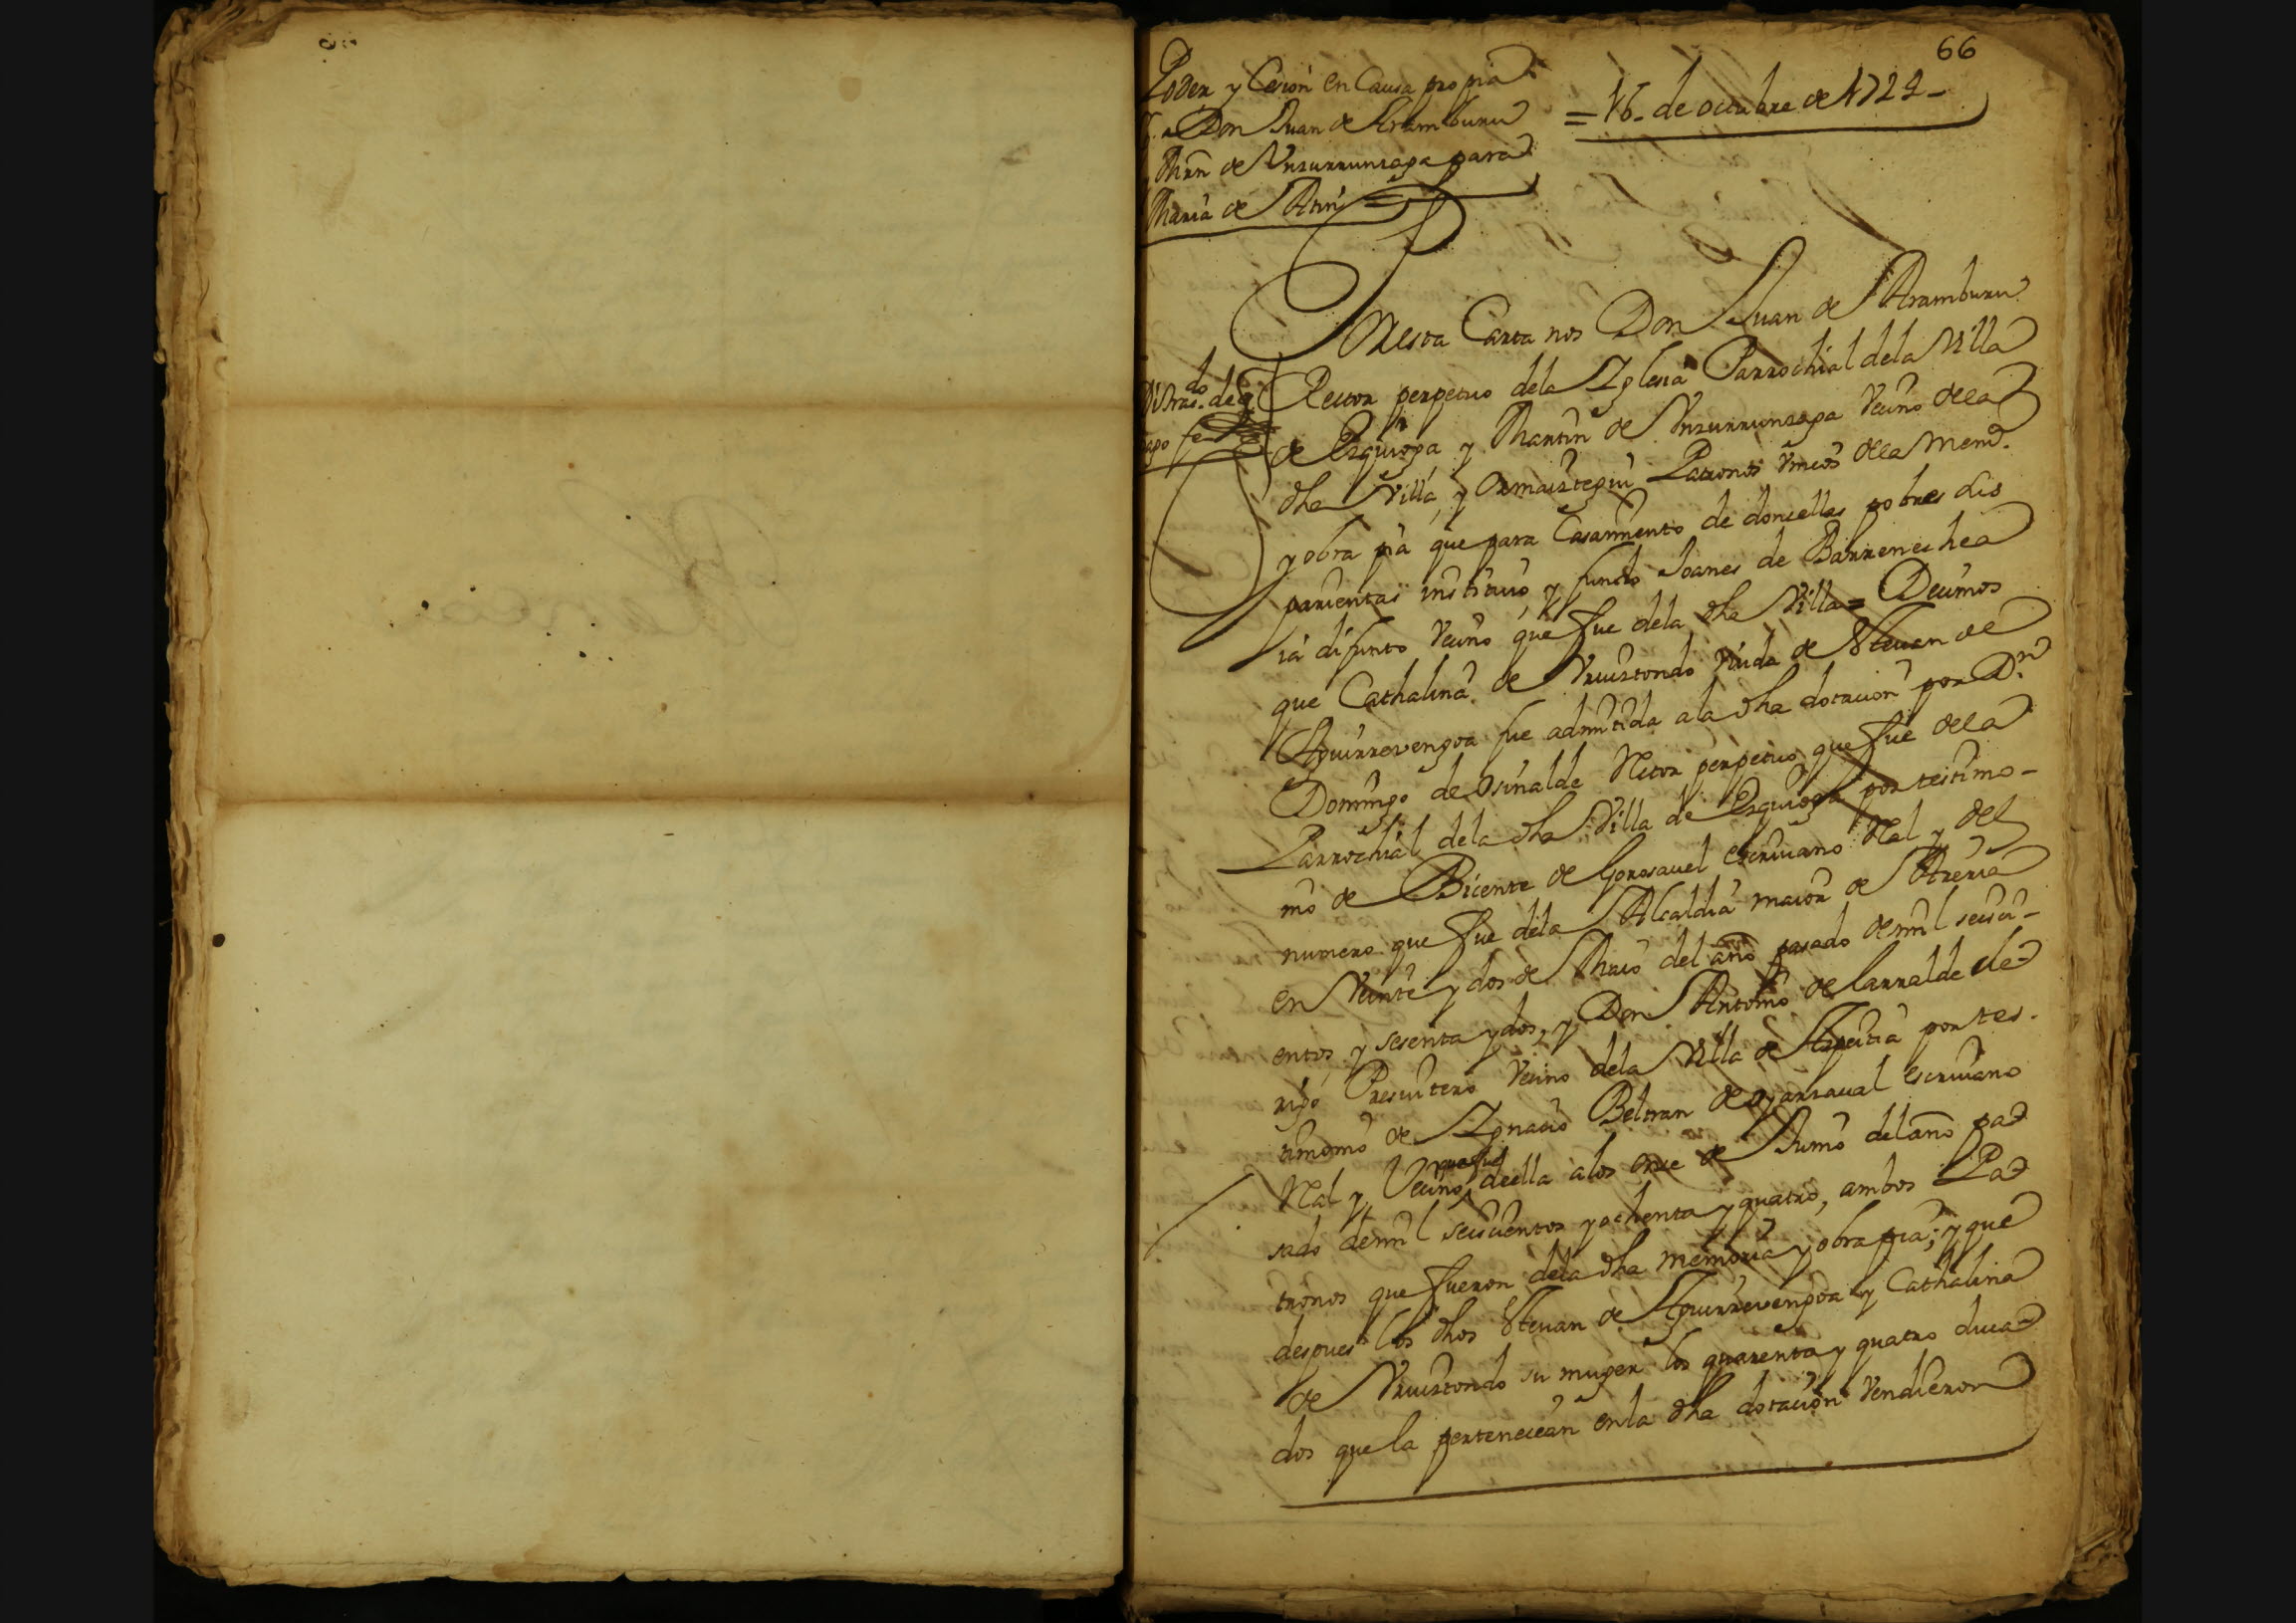 66
Poder y Cesion en Causa propia
Don Juan de Aramburu
Mrn de Ynsurrunsaga para
Maria de Atin
= 16. de octubre de 1722 -
En esta Carta nos Don Juan de Aramburu
Rector perpetuo dela Yglesia Parrochial dela Villa
de Ezquioga y Martin de Ynsurrunsaga Vecino dela
dha Villa, y Ormaiztegui Patronos Vnicos dela Mem.ª
y obra pia que para Casamiento de doncellas pobres sus
parientas instituio y fundo Joanes de Barrenechea
ia difunto Vecino que fue dela dha Villa = Decimos
que Cathalina de Vruiztondo Viuda de Steuan de
Aguirrevengoa fue admitida ala dha dotacion por Dn
Domingo de Osinalde Retor perpetuo que fue dela
Parrochial dela dha Villa de Ezquioga por testimo-
nio de Bicente de Gorosauel escriuano Real y del
numero que fue dela Alcaldia maior de Areria
en Veinte y dos de Maio del año pasado de mil seisci-
entos y sesenta y dos, y Don Antonio de Larralde cle
rigo Presuitero Vecino dela Villa de Azpeitia por tes-
timonio de Ygnacio Beltran de oyarzaual escriuano
Real y Vecino que fue deella alos onze de Junio del año pa
sado demil seiscientos y ochenta y quatro, ambos Pa
tronos que fueron dela dha memoria y obra pia; y que
despues los dhos Steuan de Aguirrevengoa y Cathalina
de Vruiztondo su muger los quarenta y quatro duca
dos que la pertenecean enla dha dotacion Vendieron